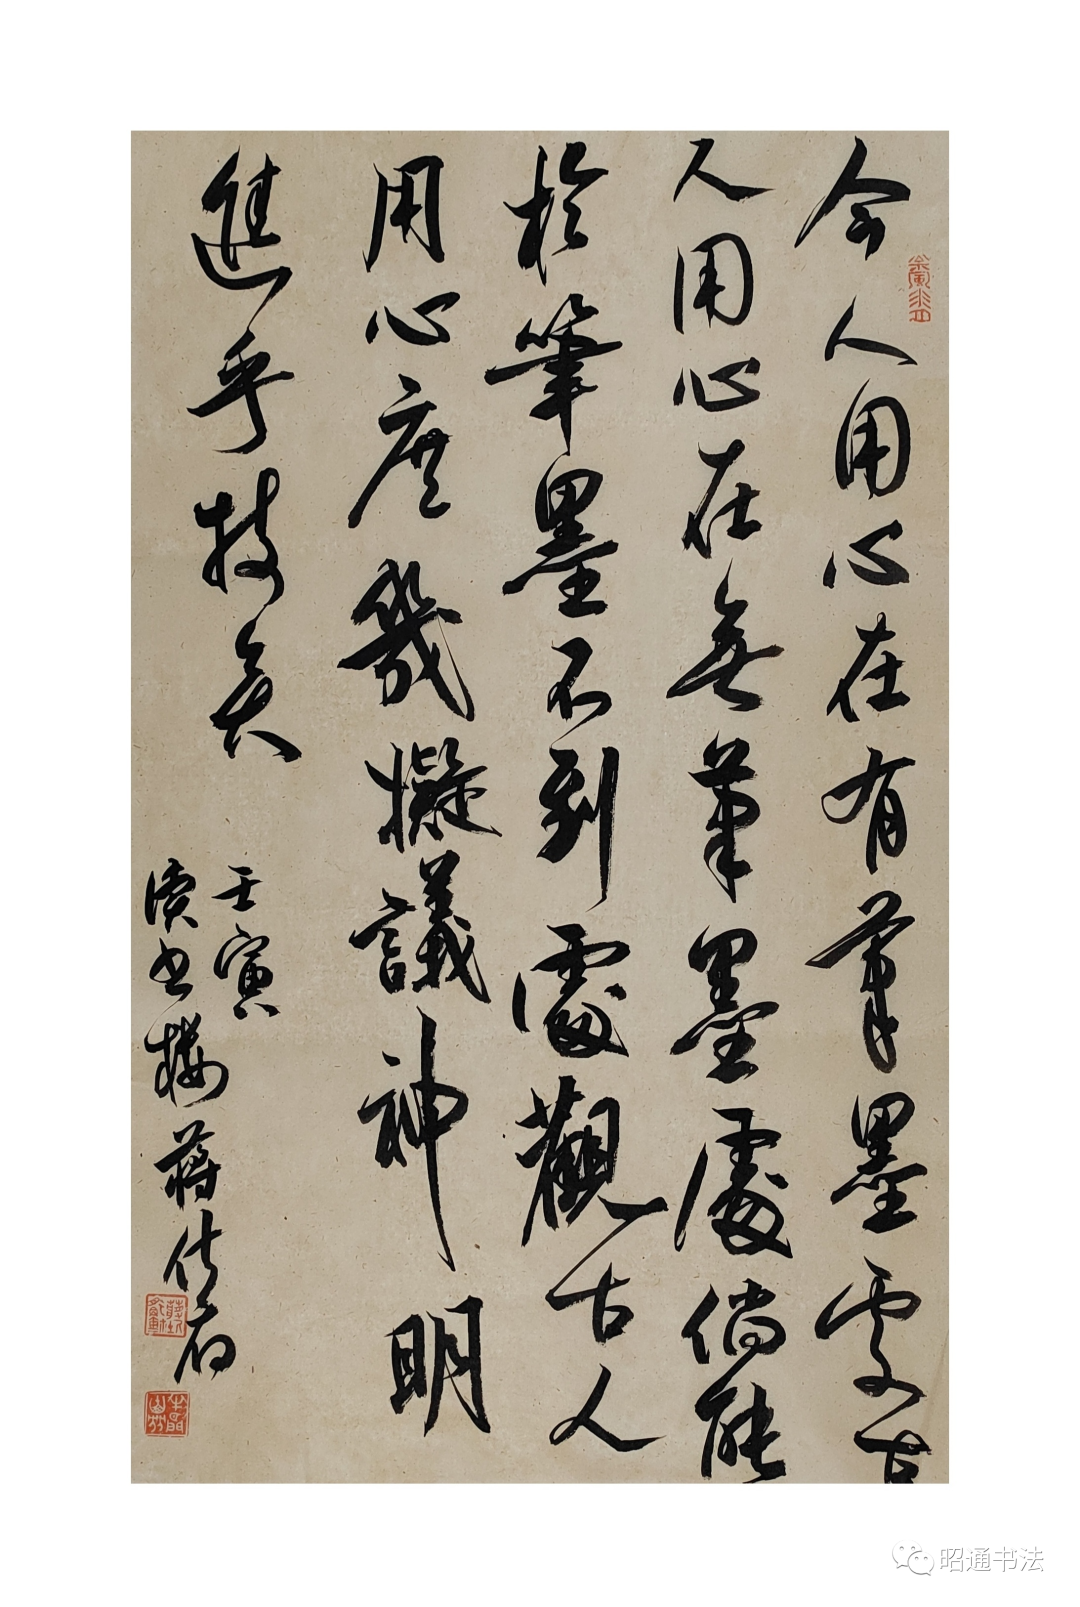 今人用心在有筆墨處古
人用心在無筆墨處倘能
於筆墨不到處觀古人
用心庶幾擬議神明
進乎技矣
壬寅
讀書樓蔣仕
昭通书法